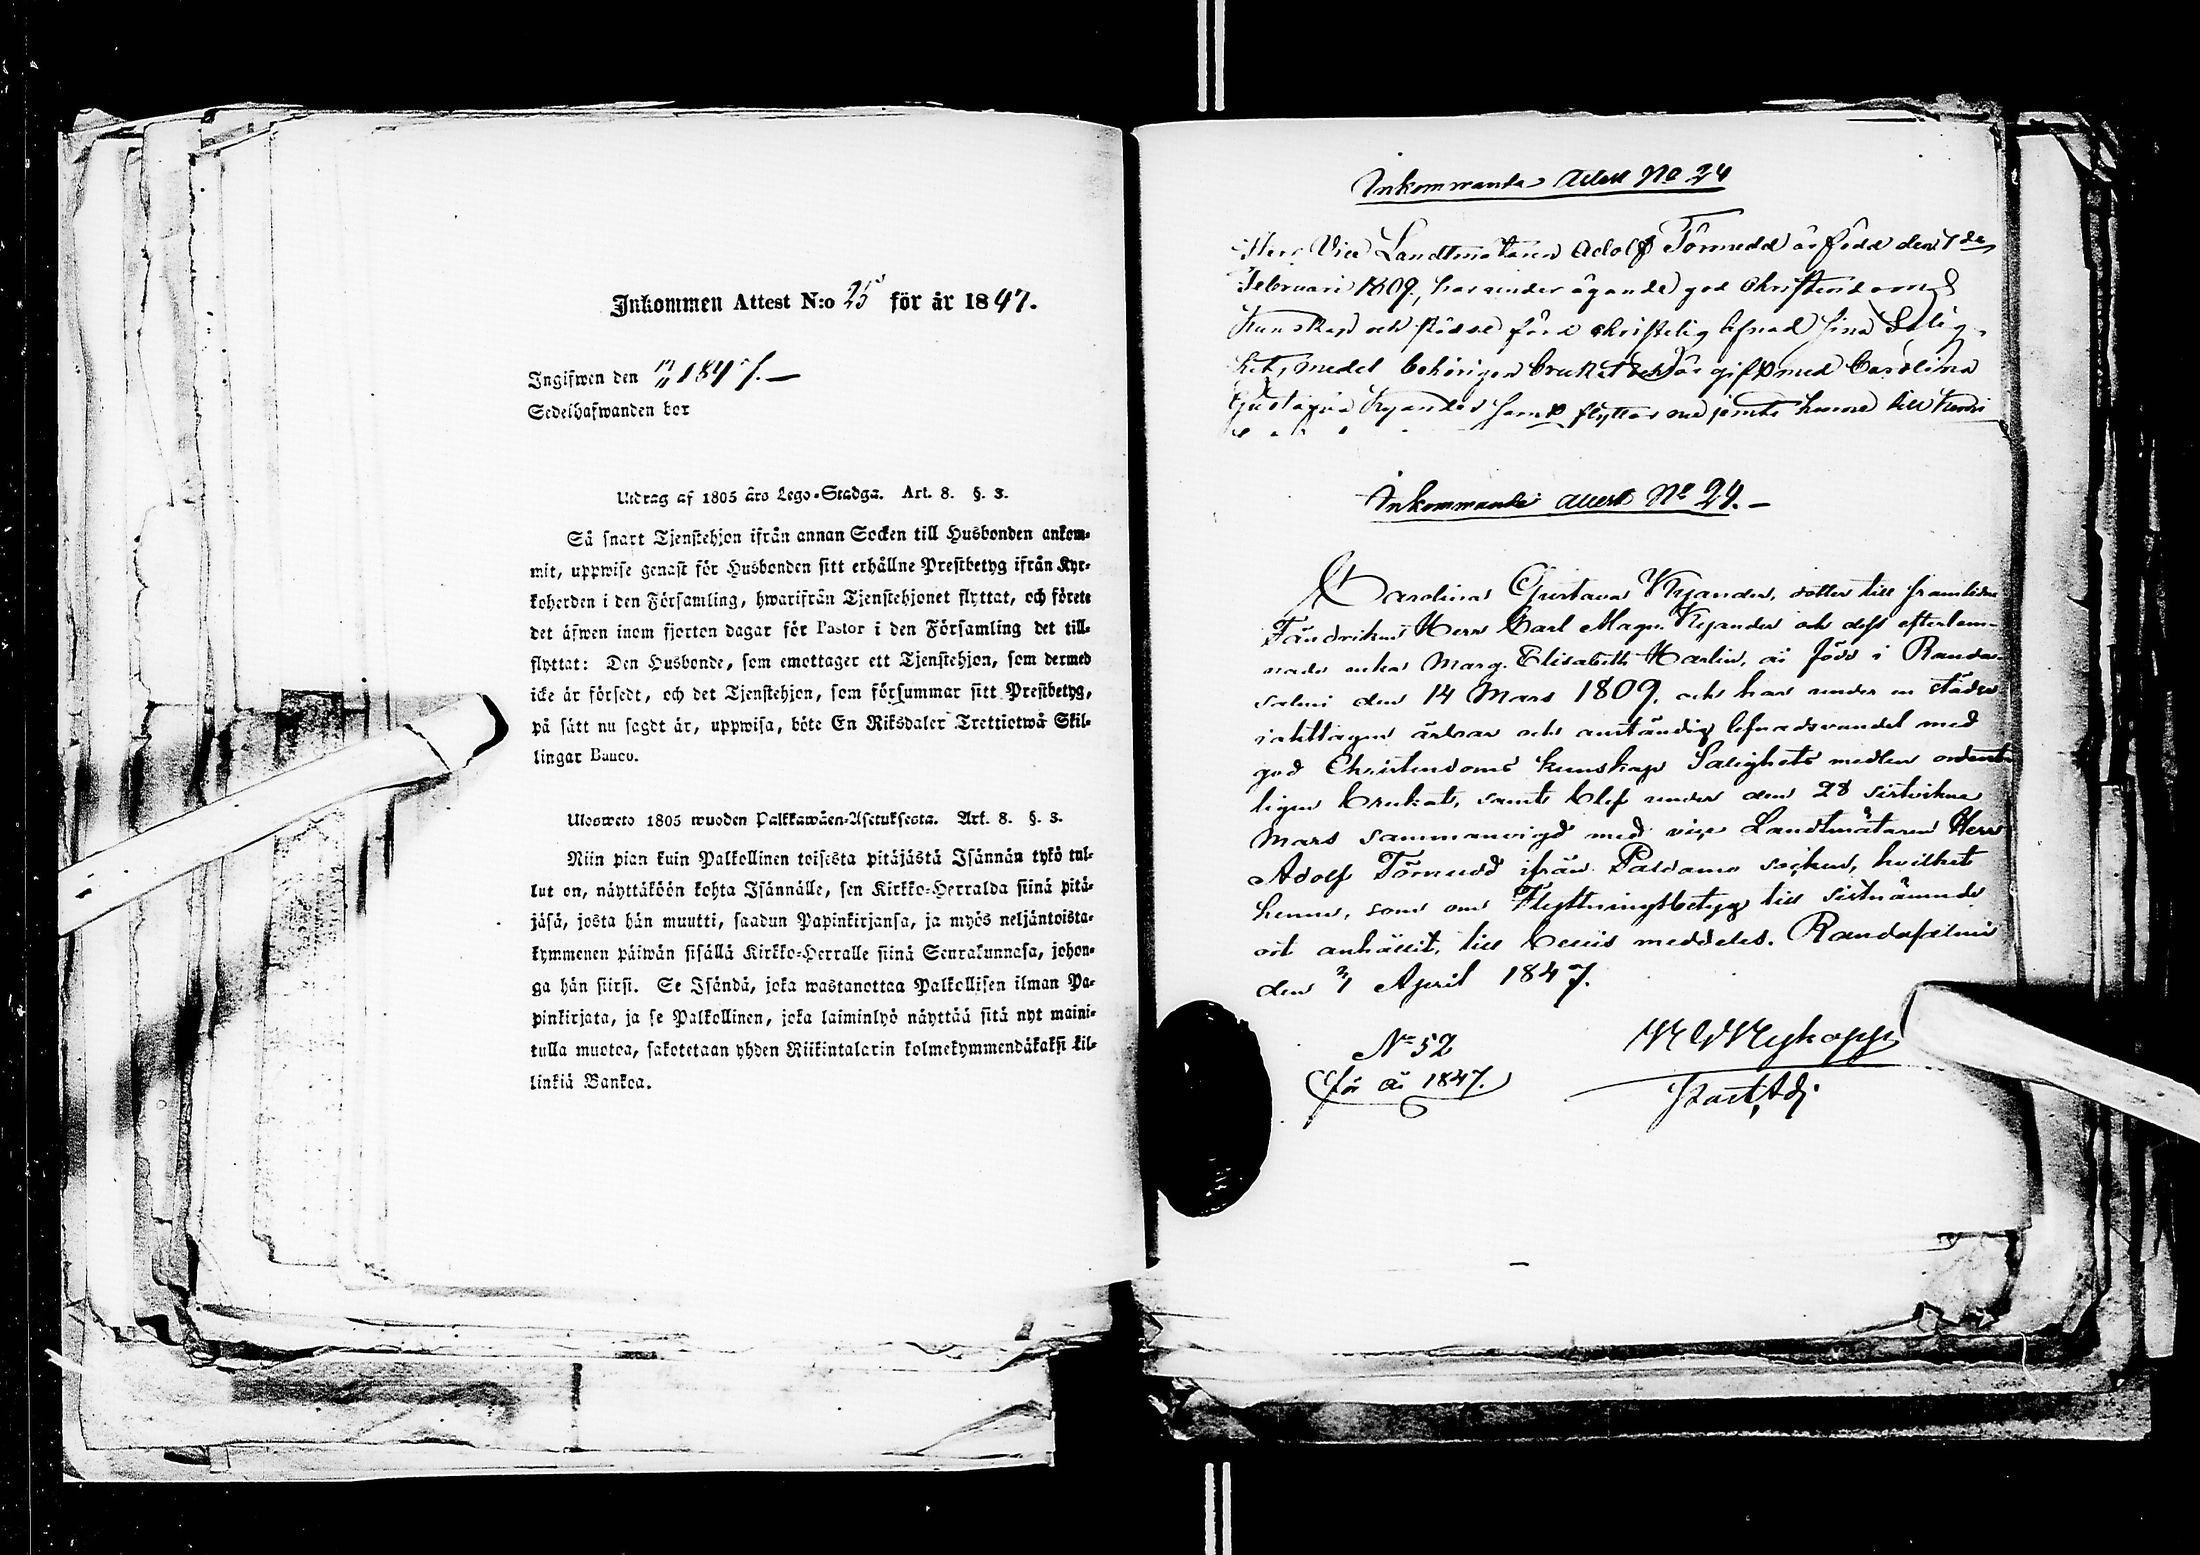 Inkommen Attest N:o 25 för år 1847.
Ingifwen den 17/11 1847. —
Sedelhafwanden bor
Utdrag af 1805 års Lego-Stadga. Art. 8. §. 3.
Så snart Tjenstehjon ifrån annan Socken till Husbonden ankom-
mit, uppwise genast för Husbonden sitt erhållne Prestbetyg ifrån Kyr-
koherden i den Församling, hwarifrån Tjenstehjonet flyttat, och förete
det äfwen inom fjorton dagar för Pastor i den Församling det till-
flyttat: Den Husbonde, som emottager ett Tjenstehjon, som dermed
icke är försedt, och det Tjenstehjon, som försummar sitt Prestbetyg,
på sätt nu sagdt är, uppwisa, böte En Riksdaler Trettiotwå Skil-
lingar Banco.
Ulosweto 1805 wuoden Palkkawäen-Asetuksesta. Art. 8. §. 3.
Niin pian kuin Palkollinen toisesta pitäjästä Isännän tykö tul-
lut on, näyttäköön kohta Isännälle, sen Kirkko-Herralda siinä pitä-
jäsä, josta hän muutti, saadun Papinkirjansa, ja myös neljäntoista-
kymmenen päiwän sisällä Kirkko-Herralle siinä Seurakunnasa, johon-
ga hän siirsi. Se Isändä, joka wastanottaa Palkollisen ilman Pa-
pinkirjata, ja se Palkollinen, joka laiminlyö näyttää sitä nyt maini-
tulla muotoa, sakotetaan yhden Riikintalarin kolmekymmendäkaksi kil-
linkiä Bankoa.
Inkommande Attest No 24
Herr Vice Landtmätaren Adolf Törnudd är född den 7de
Februari 1809, har under ägande god Christendoms
Kunskap och för christelig lefnad sina Salig-
het, medel behörigen brukat är gift med Carolina
Gustava Kyander som flyttar med jemte honom till
Inkommande attest No 24. —
Carolina Gustava Kyander, dotter till framlidne
Fändriken Herr Carl Magn. Kyander och dess efterlem-
nade enka Marg. Elisabeth Harlin, är född i Randa-
salmi den 14 Mars 1809, och har under en städse
iakttagen ärbar och anständig lefnadsvandel med
god Christendoms kunskap Salighets medlen ordent-
ligen brukat, samt blef under den 28 sistvikne
Mars sammanvigd med vice Landtmätaren Herr
Adolf Törnudd ifrån Paldamo socken, hvilket
henne, som om Flyttningsbetyg till sistnämnde
ort anhållit, till bevis meddeles. Randasalmi
den April 1847.
No 52
för år 1847.
Nykopp
Past. Adj